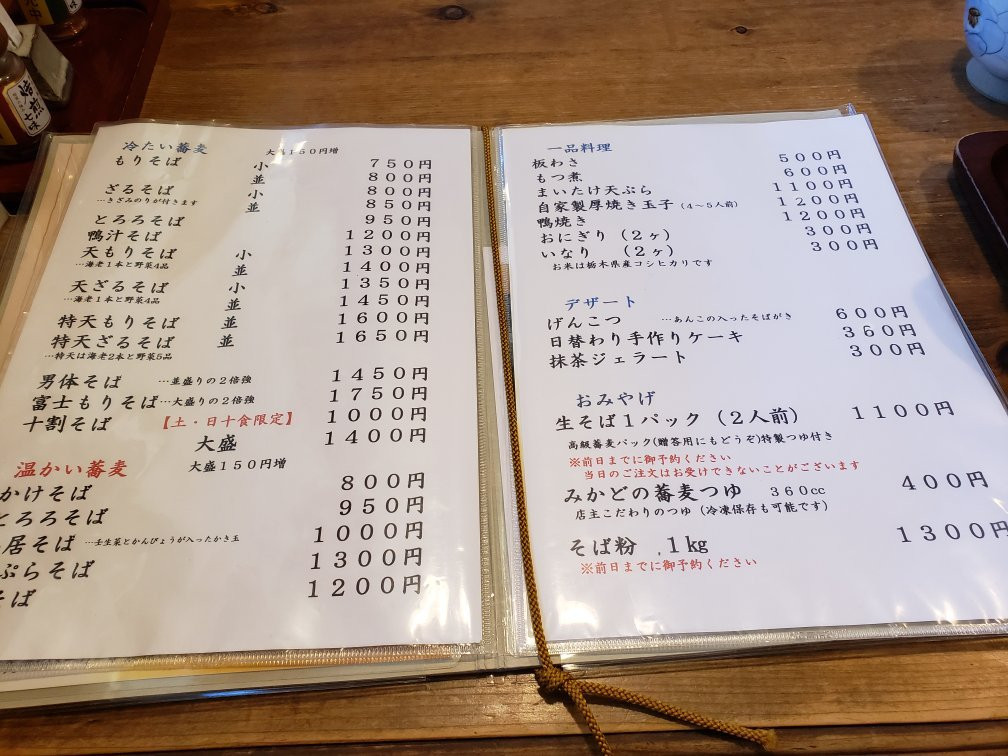 焙煎
七味
冷たい蕎麦 大盛150円増
もりそば 小 750円
並 800円
ざるそば 小 800円
…きざみのりが付きます 並 850円
とろろそば 950円
鴨汁そば 1200円
天もりそば 小 1300円
…海老1本と野菜4品 並 1400円
天ざるそば 小 1350円
…海老1本と野菜4品 並 1450円
特天もりそば 並 1600円
特天ざるそば 並 1650円
…特天は海老2本と野菜5品
男体そば …並盛りの2倍強 1450円
富士もりそば…大盛りの2倍強 1750円
十割そば 【土・日十食限定】 1000円
大盛 1400円
温かい蕎麦 大盛150円増
かけそば 800円
とろろそば 950円
居そば …壬生菜とかんぴょうが入ったかき玉 1000円
ぷらそば 1300円
そば 1200円
一品料理
板わさ 500円
もつ煮 600円
まいたけ天ぷら 1100円
自家製厚焼き玉子(4～5人前) 1200円
鴨焼き 1200円
おにぎり(2ヶ) 300円
いなり (2ヶ) 300円
お米は栃木県産コシヒカリです
デザート
げんこつ …あんこの入ったそばがき 600円
日替わり手作りケーキ 360円
抹茶ジェラート 300円
おみやげ
生そば1パック(2人前) 1100円
高級蕎麦パック(贈答用にもどうぞ)特製つゆ付き
※前日までに御予約ください
当日のご注文はお受けできないことがございます
みかどの蕎麦つゆ 360cc 400円
店主こだわりのつゆ(冷凍保存も可能です)
そば粉 1kg 1300円
※前日までに御予約ください